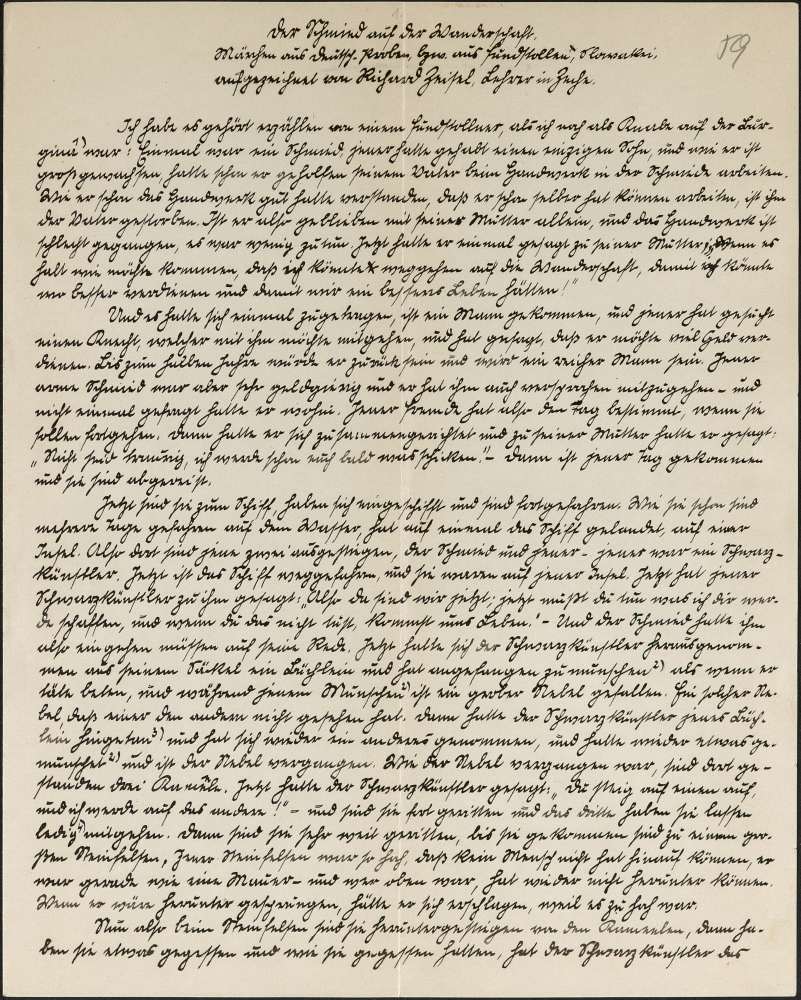 Der Schmied auf der Wanderschaft.
Märchen aus Deutsch-Proben, bzw. aus Fundstollen, Slowakei,
aufgezeichnet von Richard Zeisel, Lehrer in Zeche.
59
Ich habe es gehört erzählen von einem Fundstollner, als ich noch als Knabe auf der Bur-
ginä¹) war: Einmal war ein Schmied, jener hatte gehabt einen einzigen Sohn, und wie er ist
groß gewachsen, hatte schon er geholfen seinem Vater beim Handwerk in der Schmiede arbeiten.
Wie er schon das Handwerk gut hatte verstanden, daß er schon selber hat können arbeiten, ist ihm
der Vater gestorben. Ist er also geblieben mit seiner Mutter allein, und das Handwerk ist
schlecht gegangen, es war wenig zu tun. Jetzt hatte er einmal gesagt zu seiner Mutter: „Wenn es
halt wie möchte kommen, daß ich könnte weggehen auf die Wanderschaft, damit ich könnte
wo besser verdienen und damit wir ein besseres Leben hätten!“
Und es hatte sich einmal zugetragen, ist ein Mann gekommen, und jener hat gesucht
einen Knecht, welcher mit ihm möchte mitgehen, und hat gesagt, daß er möchte viel Geld ver-
dienen. Bis zum halben Jahre würde er zurück sein und wird ein reicher Mann sein. Jener
arme Schmied war aber sehr geldgierig und er hat ihm auch versprochen mitzugehen – und
nicht einmal gefragt hatte er wohin. Jener Fremde hat also den Tag bestimmt, wenn sie
sollen fortgehen. Dann hatte er sich zusammengerichtet und zu seiner Mutter hatte er gesagt:
„Nicht seid traurig, ich werde schon euch bald was schicken!“ – Dann ist jener Tag gekommen
und sie sind abgereist.
Jetzt sind sie zum Schiff, haben sich eingeschifft und sind fortgefahren. Wie sie schon sind
mehrere Tage gefahren auf dem Wasser, hat auf einmal das Schiff gelandet, auf einer
Insel. Also dort sind jene zwei ausgestiegen, der Schmied und jener – jener war ein Schwarz-
künstler. Jetzt ist das Schiff weggefahren, und sie waren auf jener Insel. Jetzt hat jener
Schwarzkünstler zu ihm gesagt: „Also da sind wir jetzt; jetzt mußt du tun was ich dir wer-
de schaffen, und wenn du das nicht tust, kommst ums Leben.“ – Und der Schmied hatte ihm
also eingehen müssen auf seine Rede. Jetzt hatte sich der Schwarzkünstler herausgenom-
men aus seinem Säckel ein Büchlein und hat angefangen zu munschen²) als wenn er
täte beten, und während jenem Munschen²) ist ein grober Nebel gefallen. Ein solcher Ne-
bel, daß einer den andern nicht gesehen hat. Dann hatte der Schwarzkünstler jenes Büch-
lein hingetan³) und hat sich wieder ein anderes genommen, und hatte wieder etwas ge-
munschet²) und ist der Nebel vergangen. Wie der Nebel vergangen war, sind dort ge-
standen drei Kamäle. Jetzt hatte der Schwarzkünstler gesagt: „Du steig auf einen auf,
und ich werde auf das andere!“ – und sind sie fort geritten und das dritte haben sie lassen
ledig mitgehen. Dann sind sie sehr weit geritten, bis sie gekommen sind zu einem gro-
ßen Steinfelsen, jener Steinfelsen war so hoch, daß kein Mensch nicht hat hinauf können, er
war gerade wie eine Mauer – und wer oben war, hat wieder nicht herunter können.
Wenn er wäre herunter gesprungen, hätte er sich erschlagen, weil es zu hoch war.
Nun also beim Steinfelsen sind sie heruntergestiegen von den Kameelen, dann ha-
ben sie etwas gegessen und wie sie gegessen hatten, hat der Schwarzkünstler das